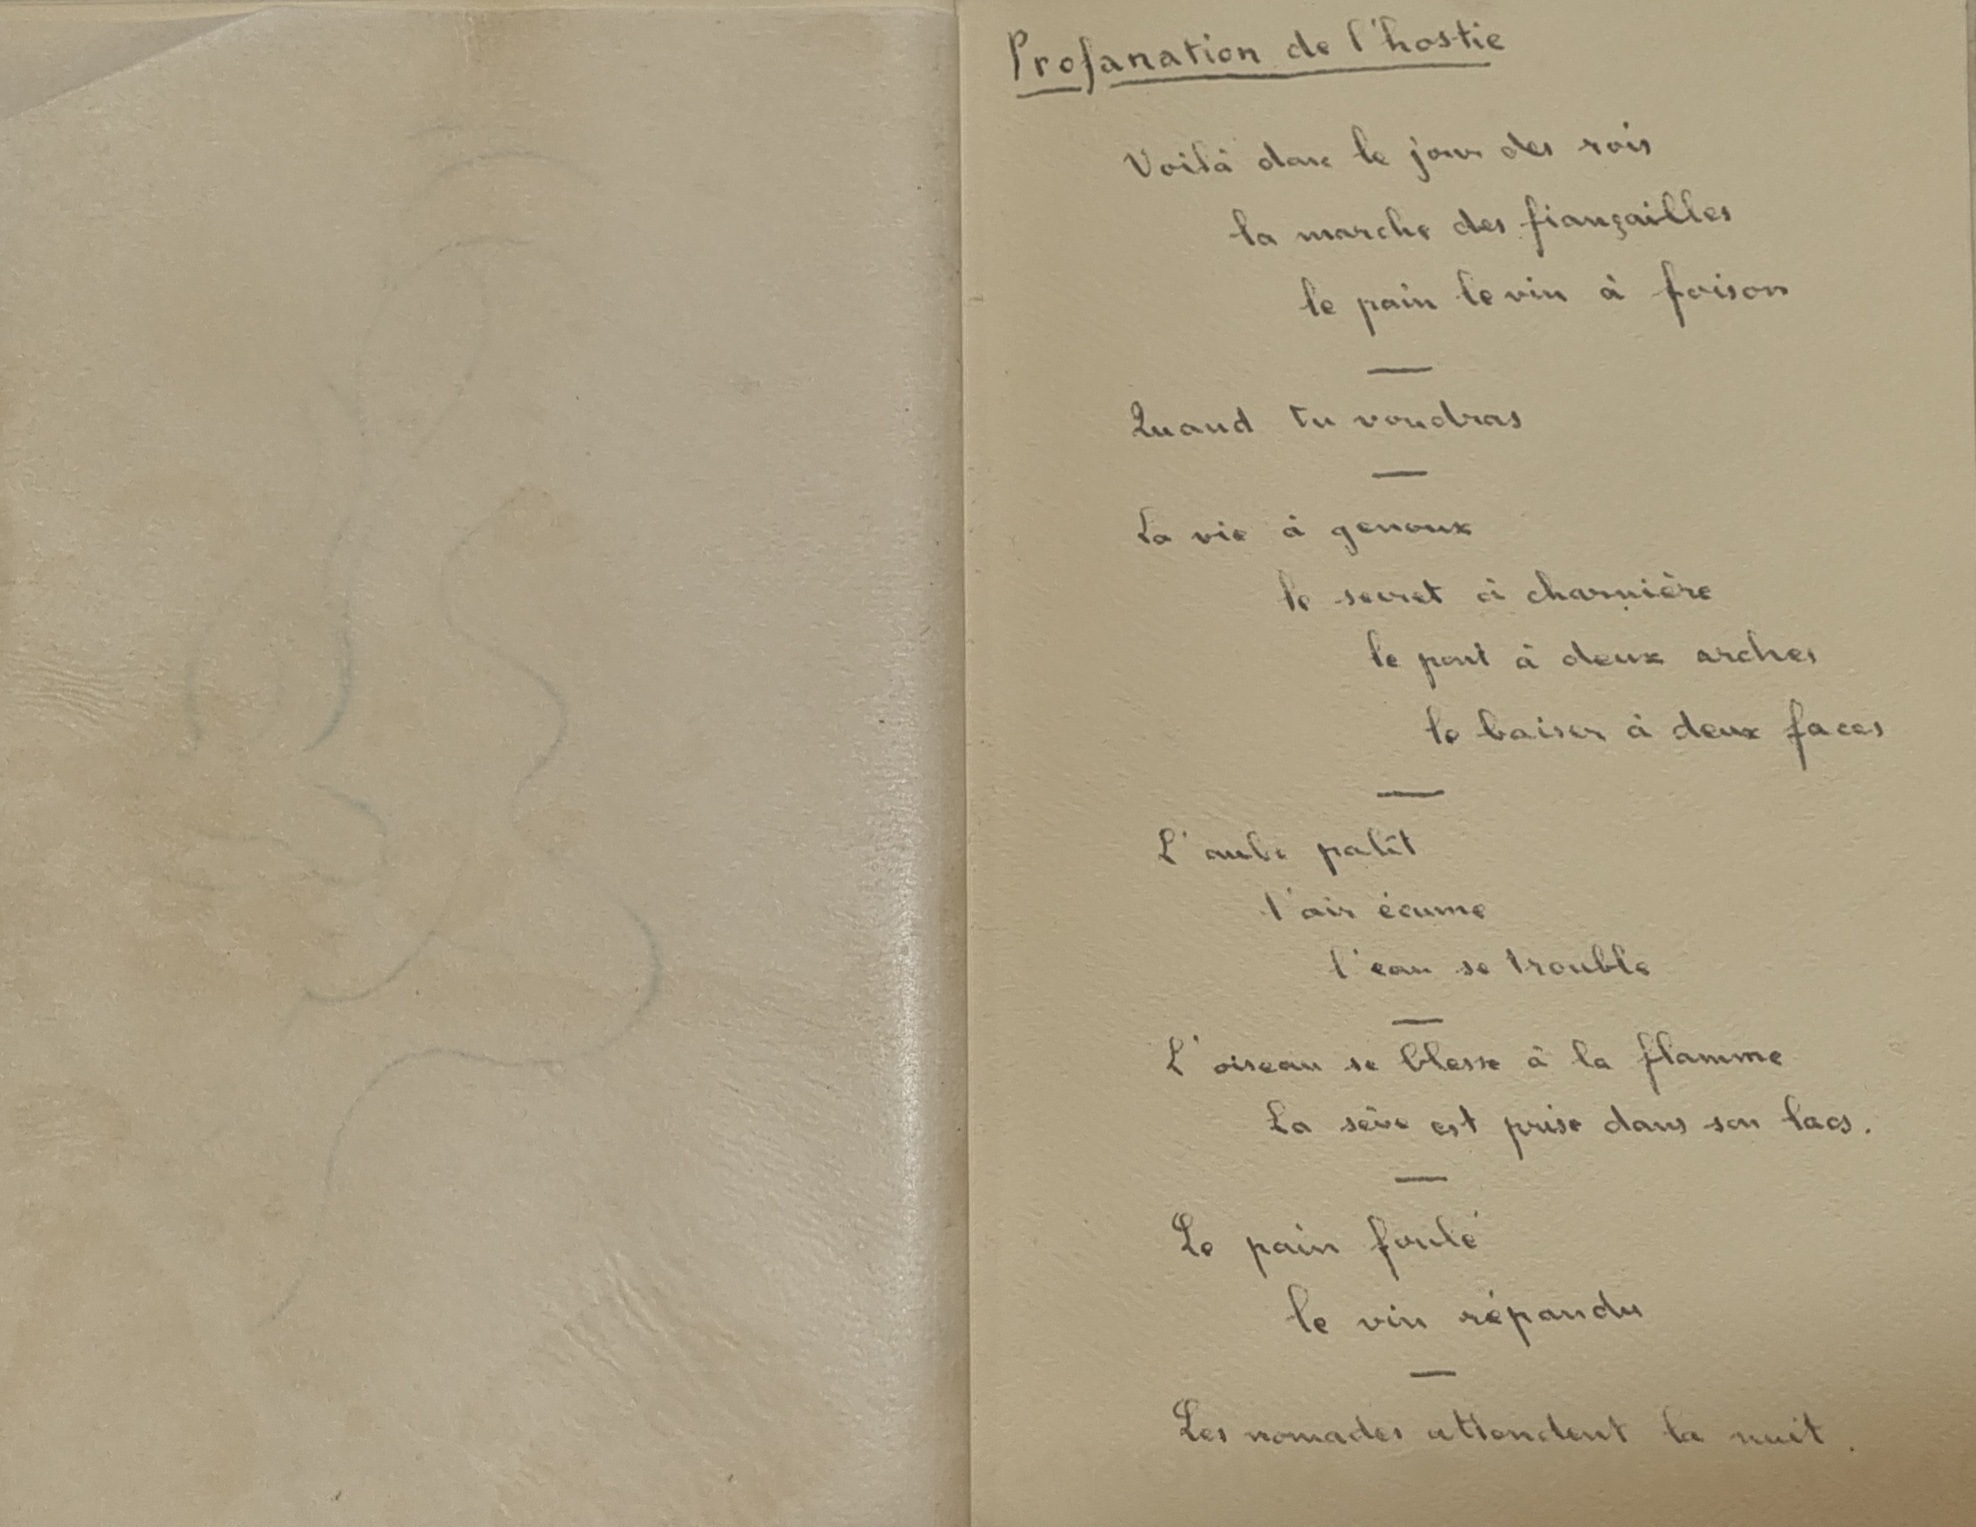 Profanation de l'hostie
Voilà donc le jour des rois
la marche des fiançailles
le pain le vin à foison
Quand tu voudras
La vie à genoux
le secret à charnière
le pont à deux arches
le baiser à deux faces
L'aube palît
l'air écume
l'eau se trouble
L'oiseau se blesse à la flamme
La sève est prise dans son lacs.
Le pain foulé
le vin répandu
Les nomades attendent la nuit.